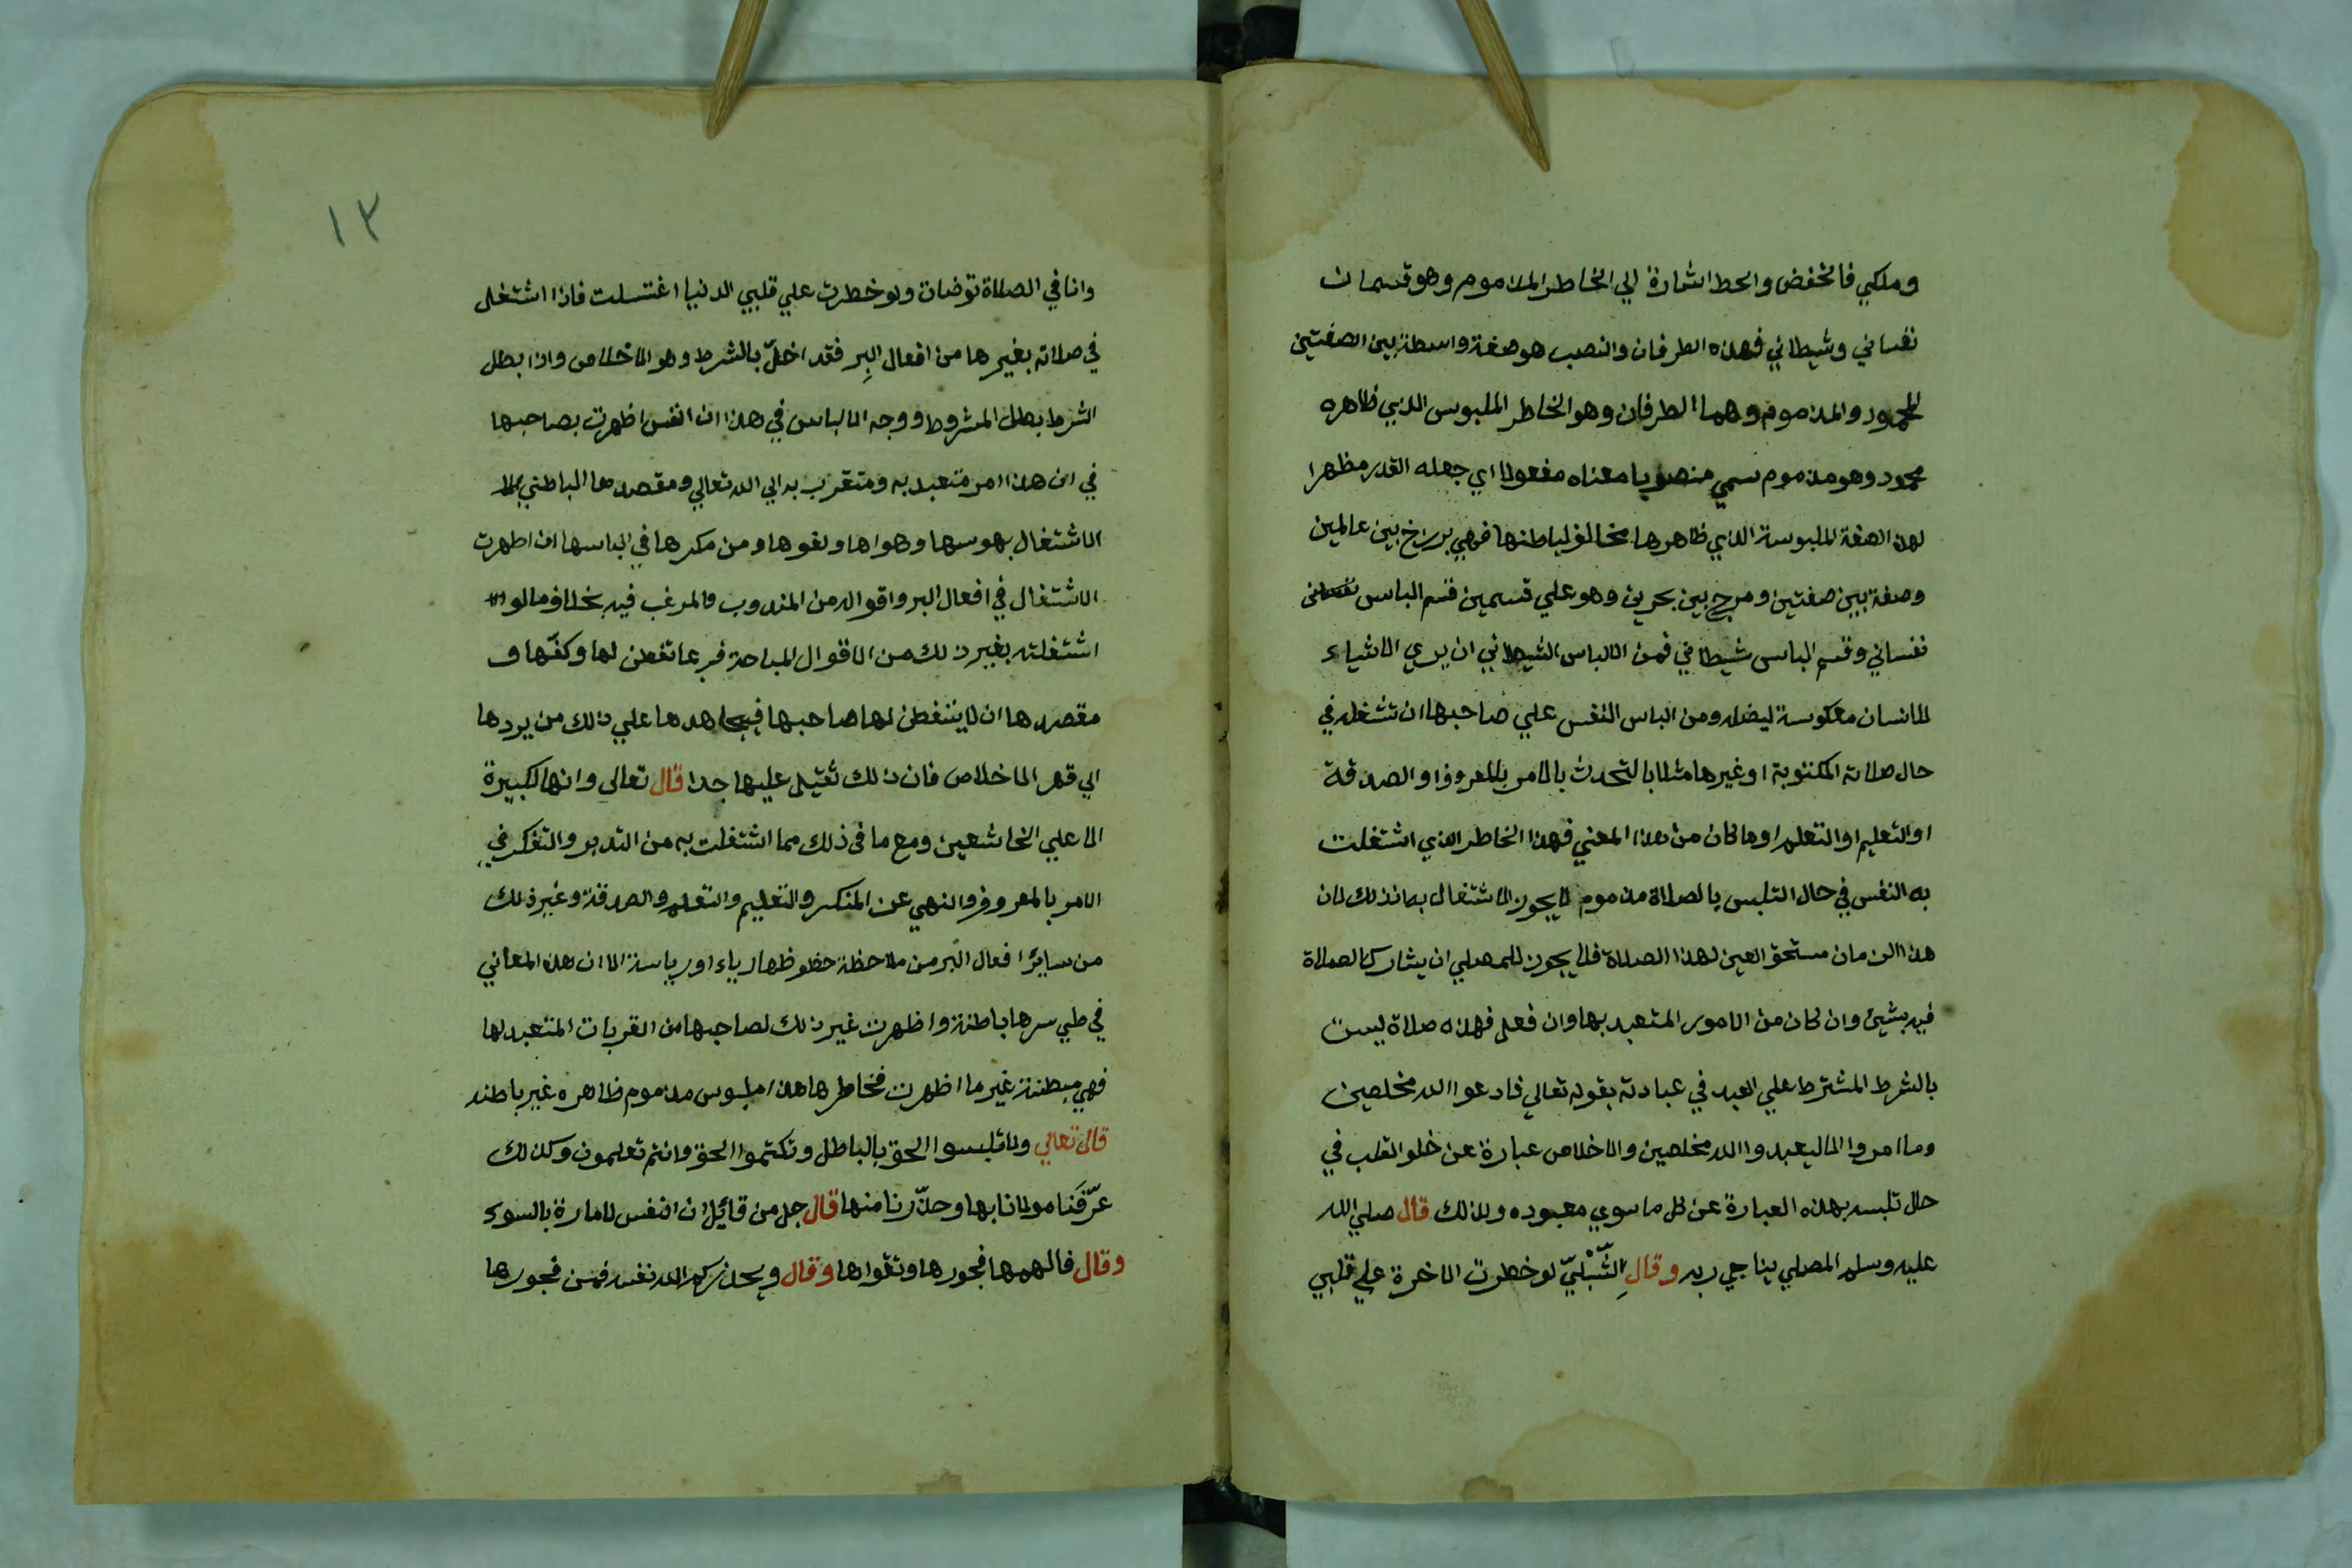 وملكي فالخفض والحط اشارة الي الخاطر المذموم وهو قسمان
نفساني وشيطاني فهذه الطرفان والنصب هو صفة واسطة بين الصفتين
المحمود والمذموم وهما الطرفان وهو الخاطر الملبوس الذي ظاهره
محمود وهو مذموم سمي منصوبا معناه مفعولا اي جعله القدر مظهرا
لهذه الصفة الملبوسة الذي ظاهرها مخالف لباطنها فهي برزاخ بين عالمين
وصفة بين صفتين ومرج بين بحرين وهو علي قسمين قسم الباس
نفساني وقسم الباس شيطاني فمن الالباس الشيطاني ان يري الاشياء
للانسان معكوسة ليضله ومن الباس النفس علي صاحبها ان تشغله في
حال صلاته المكتوبة او غيرها مثلا بالتحدث بالامر بالمعروف او الصدقة
او التعليم او التعلم او ما كان من هذا المعني فهذا الخاطر الذي اشتغلت
به النفس في حال التلبس بالصلاة مذموم لا يجوز الاشتغال به اذ ذلك لان
هذا الزمان مستحق العين لهذا الصلاة فلا يجوز للمصلي ان يشارك الصلاة
فيه بشيئ وان كان من الامور المتعبد بها وان فعل فهذه صلاة ليست
بالشرط المشترط علي العبد في عبادته بقوله تعالي فادعوا الله مخلصين
وما امروا الا ليعبدوا الله مخلصين والاخلاص عبارة عن خلو القلب في
حال تلبسه بهذه العبارة عن كل ما سوي معبوده ولذلك قال صلي الله
عليه وسلم المصلي يناجي ربه وقال الشبلي لو خطرت الاخرة علي قلبي
١٣
وانا في الصلاة توضات ولو خطرت علي قلبي الدنيا اغتسلت فاذا اشتغل
في صلاته بغيرها من افعال البر فقد اخل بالشرط وهو الاخلاص واذا بطل
الشرط بطل المشروط ووجه الالباس في هذا ان النفس اظهرت بصاحبها
في ان هذا امر متعبد به ومتقرب به الي الله تعالي ومقصدها الباطني
الاشتغال بهوسها وهواها ولغوها ومن مكرها في الباسها ان اظهرت
الاشتغال في افعال البر واقواله من المندوب والمرغب فيه بخلاف ما لو
اشتغلته بغير ذلك من الاقوال المباحة فربما تفطن لها وكفها و
مقصدها ان لا يتفطن لها صاحبها فيجاهدها علي ذلك من يردها
الي قهر الاخلاص فان ذلك ثقيل عليها جدا قال تعالي وانها لكبيرة
الا علي الخاشعين ومع ما في ذلك مما اشتغلت به من التدبر والتفكر في
الامر بالمعروف والنهي عن المنكر والتعليم والتعلم والصدقة وغير ذلك
من سائر افعال البر من ملاحظة حظوظها رياء او رياسة الا ان هذه المعاني
في طي سرها باطنة واظهرت غير ذلك لصاحبها من القربات المتعبد لها
فهي مبطنة غير ما اظهرت فخاطرها هذا ملبوس مذموم ظاهره غير باطنه
قال تعالي ولا تلبسوا الحق بالباطل وتكتموا الحق وانتم تعلمون وكذلك
عرفنا مولانا بها وحذرنا منها قال جل من قائل ان النفس لامارة بالسوء
وقال فالهمها فجورها وتقواها وقال ويحذركم الله نفسه فمن فجورها